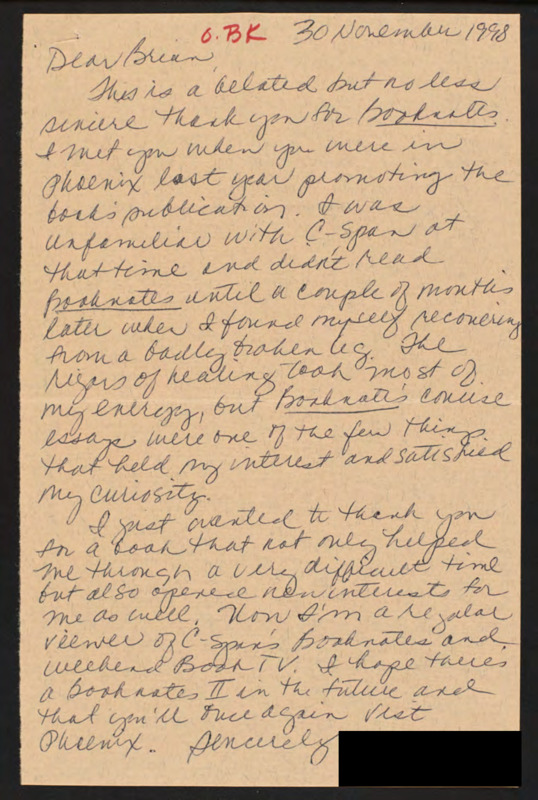 O.BK 30 November 1998
Dear Brian,
This is a belated but no less
sincere thank you for Booknotes.
I met you when you were in
Phoenix last year promoting the
book's publication. I was
unfamiliar with C-Span at
that time and didn't read
Booknotes until a couple of months
later when I found myself recovering
from a badly broken leg. The
rigors of healing took most of
my energy, but Booknote's concise
essays were one of the few things
that held my interest and satisfied
my curiosity.
I just wanted to thank you
for a book that not only helped
me through a very difficult time
but also opened new interests for
me as well. Now I'm a regular
viewer of C-Span's Booknotes and
weekend Book TV. I hope there's
a booknotes II in the future and
that you'll once again visit
Phoenix. Sincerely